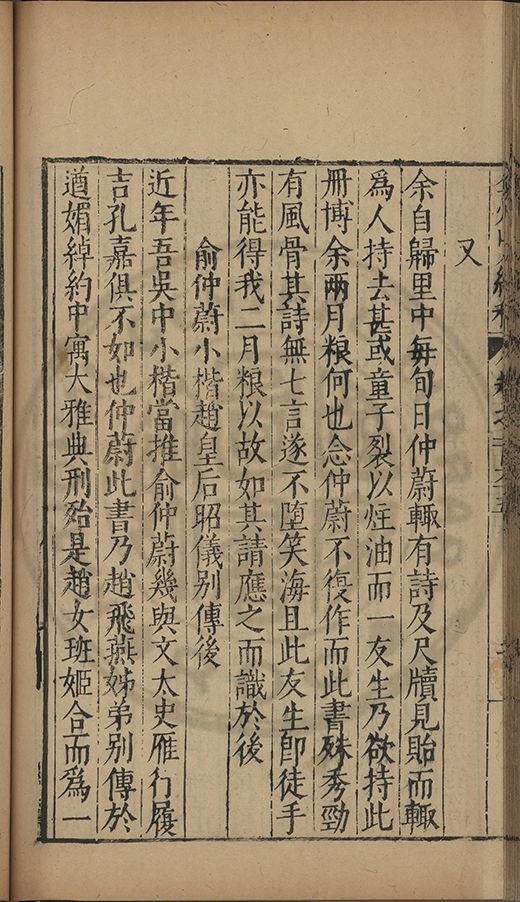 又
余自歸里中每旬日仲蔚輙有詩及尺牘見貽而輙
爲人持去甚或童子裂以炷油而一友生乃欲持此
冊博余兩月粮何也念仲蔚不復作而此書殊秀勁
有風骨其詩無七言遂不墮笑海且此友生卽徒手
亦能得我二月粮以故如其請應之而識於後
俞仲蔚小楷趙皇后昭儀别傳後
近年吾吳中小楷當推俞仲蔚幾與文太史雁行履
吉孔嘉俱不如也仲蔚此書乃趙飛燕姊弟别傳於
遒媚綽約中寓大雅典刑殆是趙女班姬合而爲一